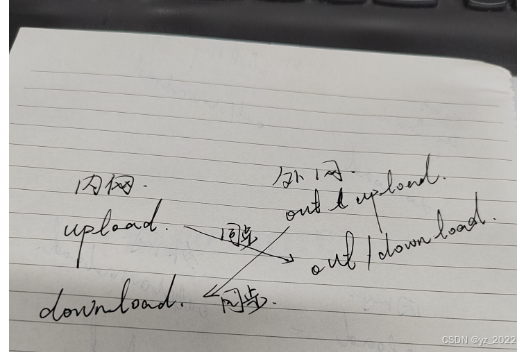 内网.
外网.
upload.
out/upload.
同步
out/download.
download.
同步.
CSDN @yz_2022